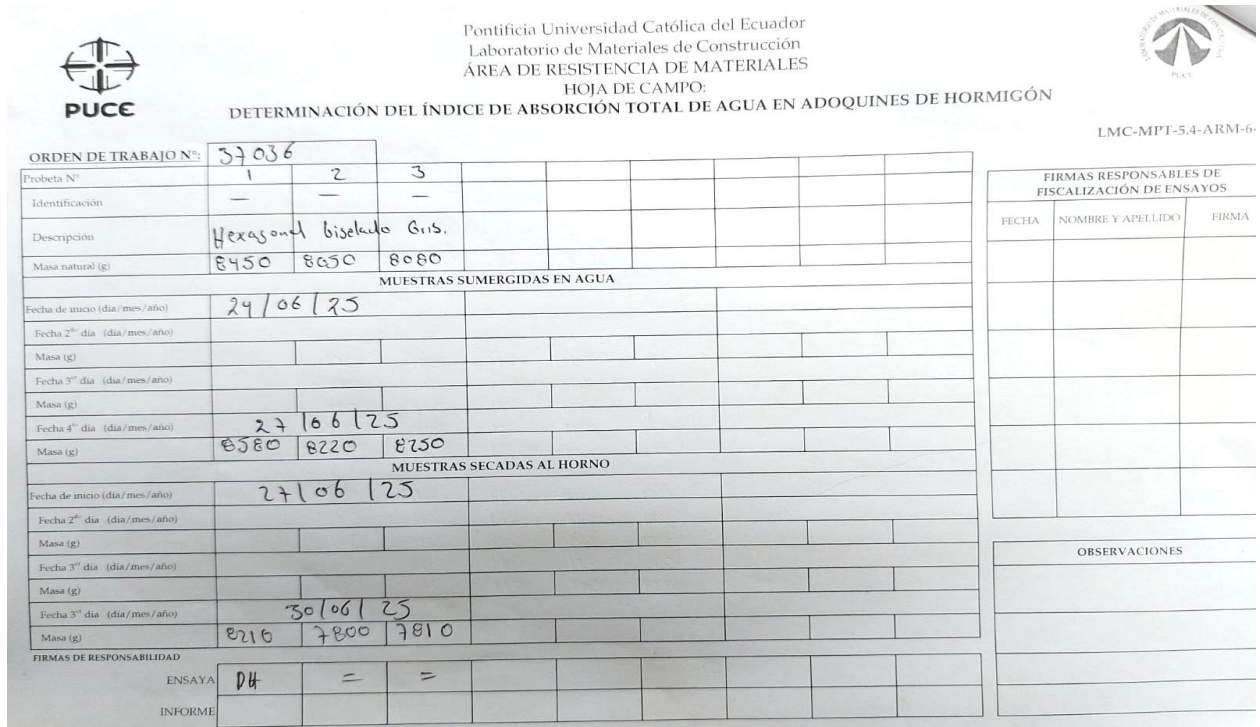 Pontificia Universidad Católica del Ecuador
Laboratorio de Materiales de Construcción
ÁREA DE RESISTENCIA DE MATERIALES
HOJA DE CAMPO:
DETERMINACIÓN DEL ÍNDICE DE ABSORCIÓN TOTAL DE AGUA EN ADOQUINES DE HORMIGÓN
PUCE
PUCE
LMC-MPT-5.4-ARM-6-
ORDEN DE TRABAJO N°: 37036
Probeta N° 1 2 3
Identificación — — —
Descripción Hexagonal biselado Gris.
Masa natural (g) 8450 8050 8080
MUESTRAS SUMERGIDAS EN AGUA
Fecha de inicio (día/mes/año) 24/06/25
Fecha 2do día (día/mes/año)
Masa (g)
Fecha 3er día (día/mes/año)
Masa (g)
Fecha 4to día (día/mes/año) 27/06/25
Masa (g) 8580 8220 8250
MUESTRAS SECADAS AL HORNO
Fecha de inicio (día/mes/año) 27/06/25
Fecha 2do día (día/mes/año)
Masa (g)
Fecha 3er día (día/mes/año)
Masa (g)
Fecha 3er día (día/mes/año) 30/06/25
Masa (g) 8210 7800 7810
FIRMAS DE RESPONSABILIDAD
ENSAYA DH = =
INFORME
FIRMAS RESPONSABLES DE
FISCALIZACIÓN DE ENSAYOS
FECHA NOMBRE Y APELLIDO FIRMA
OBSERVACIONES